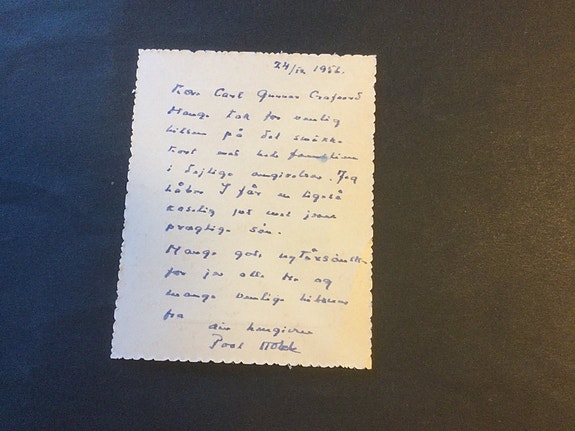 24/12 1956.
Kære Carl Gunnar Crafoord
Mange tak for venlig
hilsen på det smukke
kort med hele familien
i dejlige omgivelser. Jeg
håber I får en ligeså
jul med jeres
prægtige søn.
Mange gode nytårsønsker
for jer alle tre og
mange venlige hilsener
fra
din hengivne
Poul